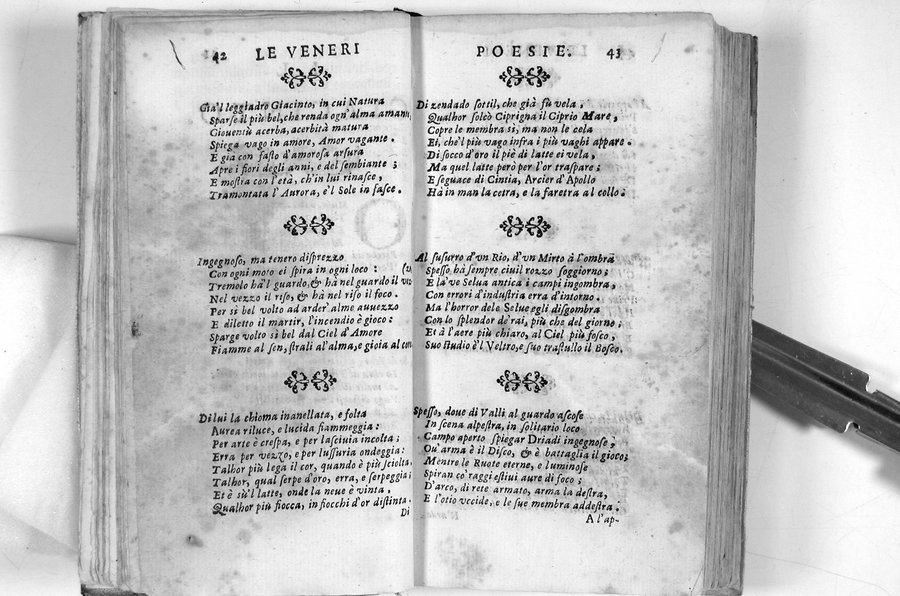 42 LE VENERI
Gia'l leggiadro Giacinto, in cui Natura
Sparse il più bel, che renda ogn'alma amant
Giouentù acerba, acerbità matura
Spiega vago in amore, Amor vagante.
E già con fasto d'amorosa arsura
Apre i fiori degli anni, e del sembiante;
E mostra con l'età, ch'in lui rinasce,
Tramontata l'Aurora, e'l Sole in fasce.
Ingegnoso, ma tenero disprezzo
Con ogni moto ei spira in ogni loco:
Tremolo hà'l guardo, & hà nel guardo il
Nel vezzo il riso, & hà nel riso il foco.
Per sì bel volto ad arder' alme auuezzo
E diletto il martir, l'incendio è gioco:
Sparge volto sì bel dal Ciel d'Amore
Fiamme al sen, strali al'alma, e gioia al
Di lui la chioma inanellata, e folta
Aurea riluce, e lucida fiammeggia:
Per arte è crespa, e per lasciuia incolta;
Erra per vezzo, e per lussuria ondeggia:
Talhor più lega il cor, quando è più sciolta,
Talhor, qual serpe d'oro, erra, e serpeggia;
Et è sù'l latte, onde la neue è vinta,
Qualhor più fiocca, in fiocchi d'or distinta.
Di
POESIE. 43
Di zendado sottil, che già fù vela,
Qualhor solcò Ciprigna il Ciprio Mare,
Copre le membra sì, ma non le cela
Ei, che'l più vago infra i più vaghi appare.
Di socco d'oro il piè di latte ei vela,
Ma quel latte però per l'or traspare;
E seguace di Cintia, Arcier d'Apollo
Hà in man la cetra, e la faretra al collo:
Al susurro d'vn Rio, d'vn Mirto à l'ombra
Spesso hà sempre ciuil rozzo soggiorno;
E là've Selua antica i campi ingombra,
Con errori d'industria erra d'intorno.
Ma l'horror dele Selue egli disgombra
Con lo splendor de'rai, più che del giorno;
Et à l'aere più chiaro, al Ciel più fosco,
Suo studio è'l Veltro, e suo trastullo il Bosco.
Spesso, doue di Valli al guardo ascose
In scena alpestra, in solitario loco
Campo aperto spiegar Driadi ingegnose,
Ou'arma è il Disco, & è battaglia il gioco;
Mentre le Ruote eterne, e luminose
Spiran co'raggi estiui aure di foco;
D'arco, di rete armato, arma la destra,
E l'otio vccide, e le sue membra addestra.
A l'ap-